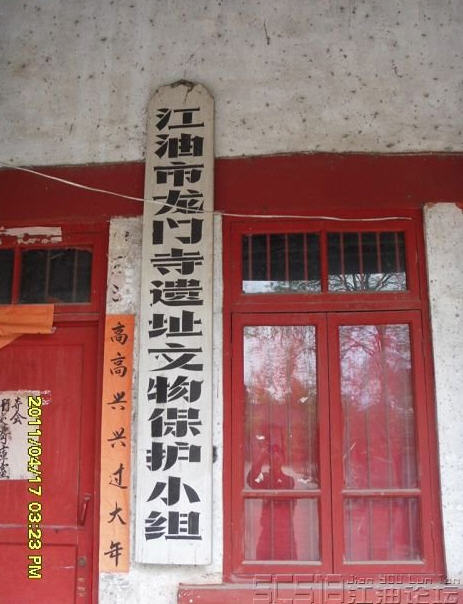 江油市龙门寺遗址文物保护小组
高高兴兴过大年
2011/04/17 03:23 PM
SC518
Jiang You Lun Tan
江油论坛